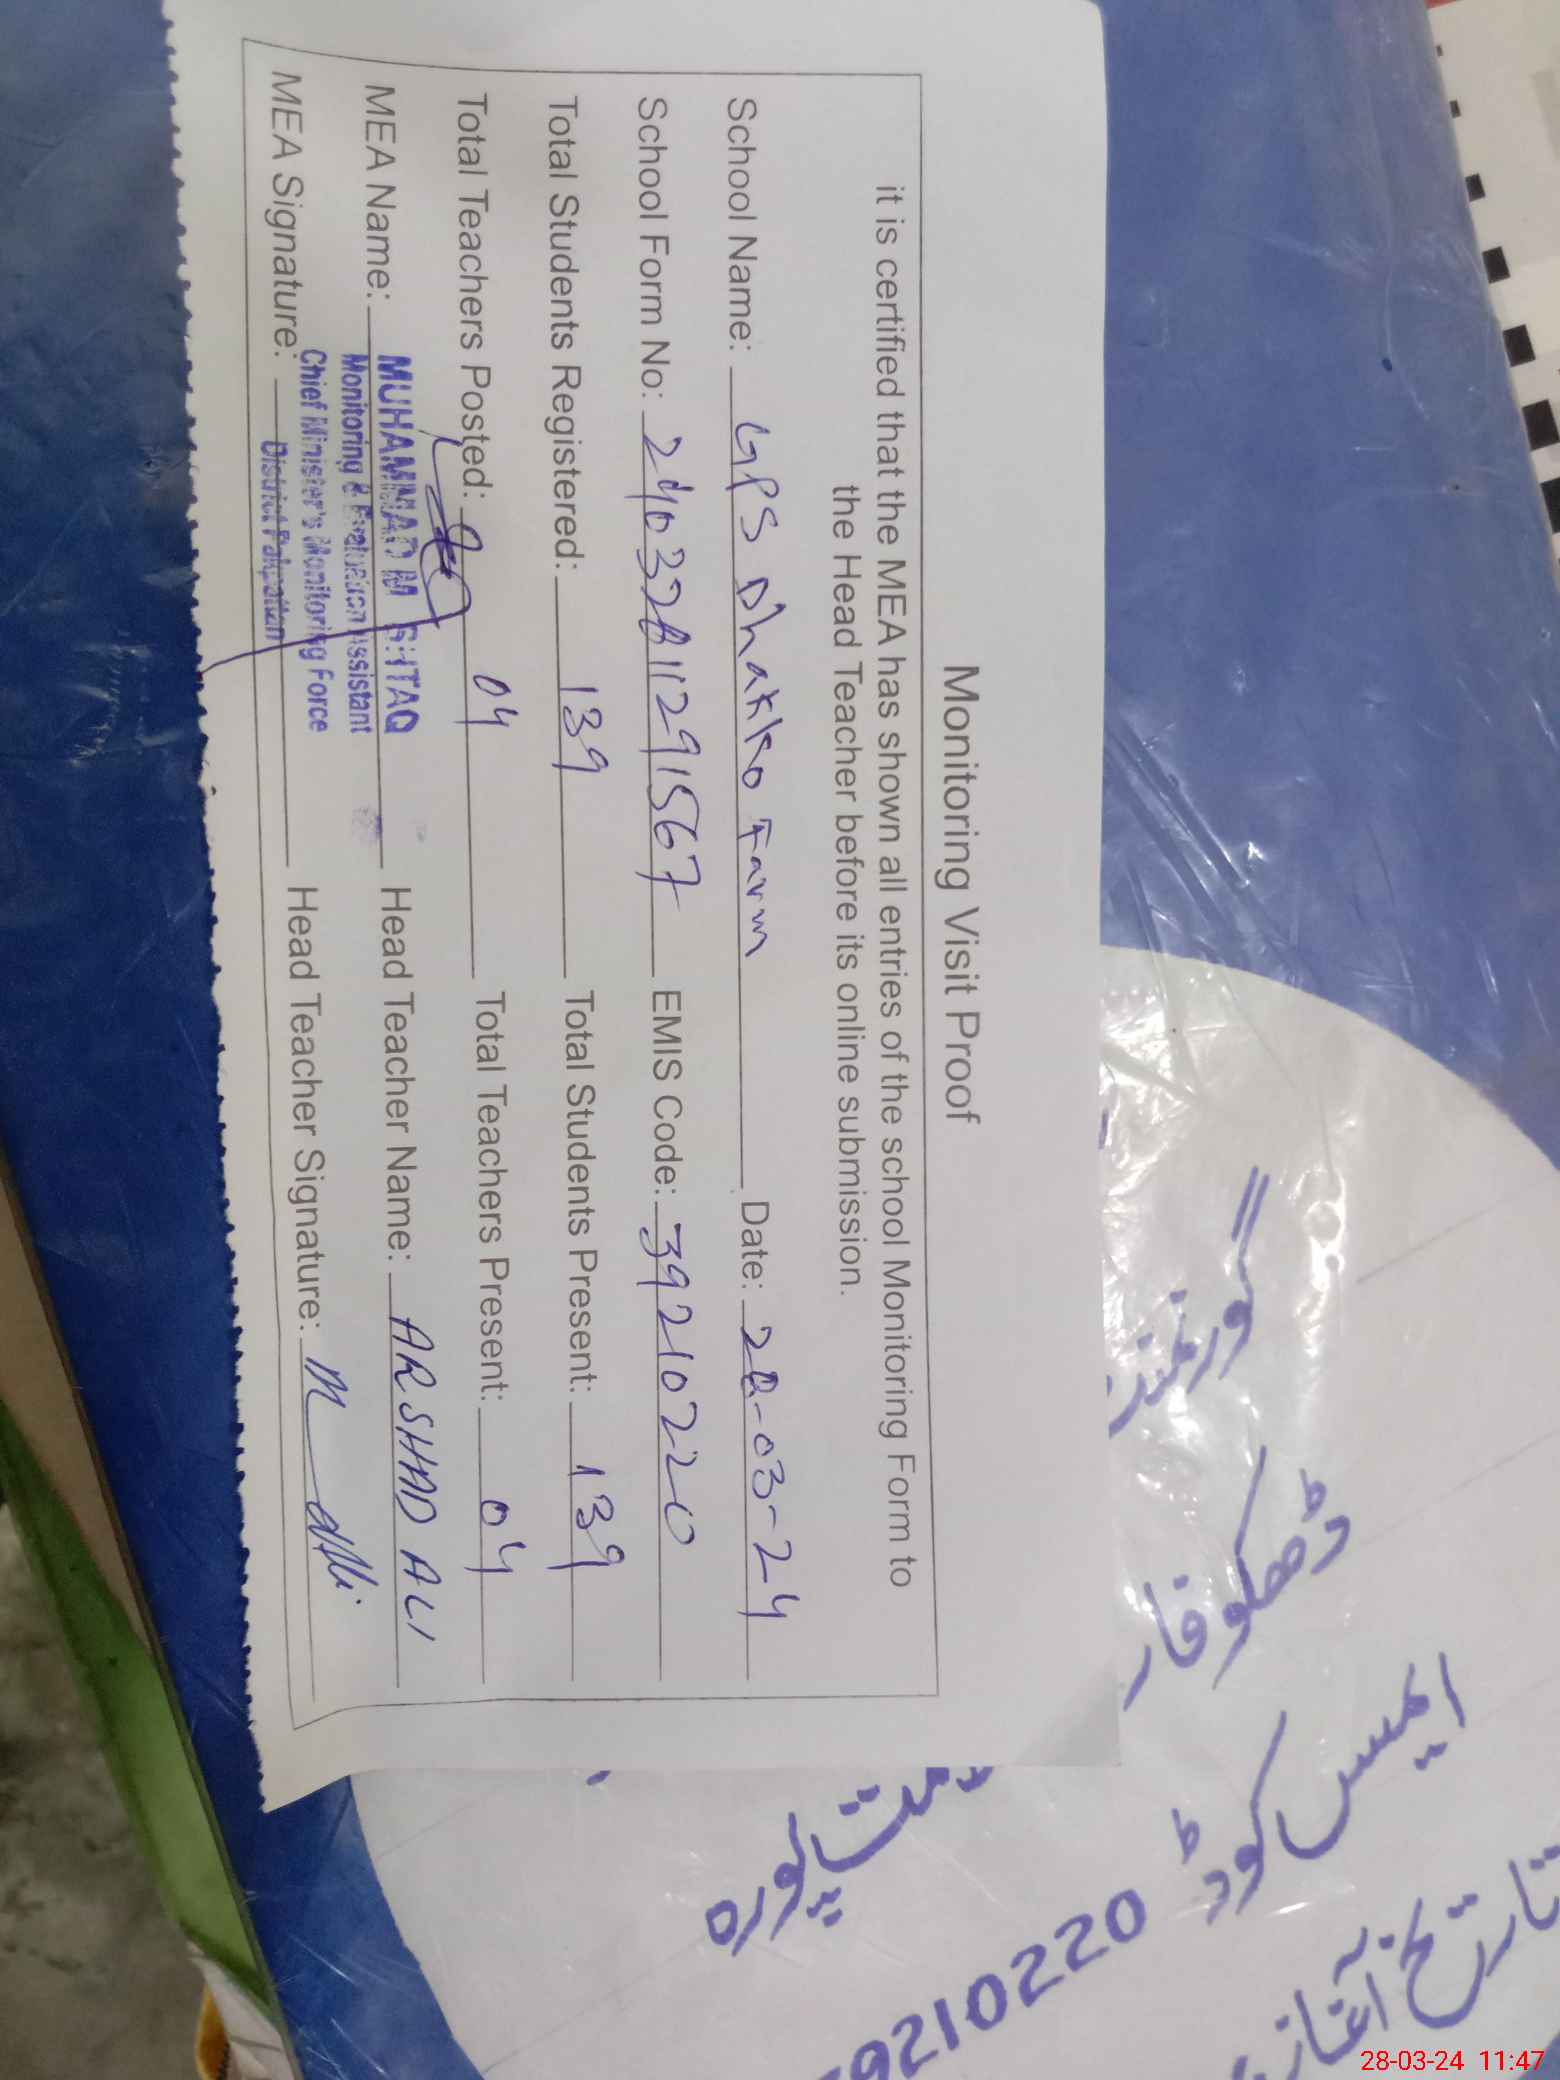 Monitoring Visit Proof
it is certified that the MEA has shown all entries of the school Monitoring Form to
the Head Teacher before its online submission.
School Name: GPS Dhakko Farm Date: 28-03-24
School Form No: 24032811291567 EMIS Code: 39210220
Total Students Registered: 139 Total Students Present: 139
Total Teachers Posted: 04 Total Teachers Present: 04
MEA Name: MUHAMMAD MUSHTAQ Head Teacher Name: ARSHAD ALI
Monitoring & Evaluation Assistant
Chief Minister's Monitoring Force
MEA Signature: District Pakpattan Head Teacher Signature:
گورنمنٹ
ڈھکو فار
پورہ
ایمس کوڈ 39210220
تاریخ آغاز
28-03-24 11:47